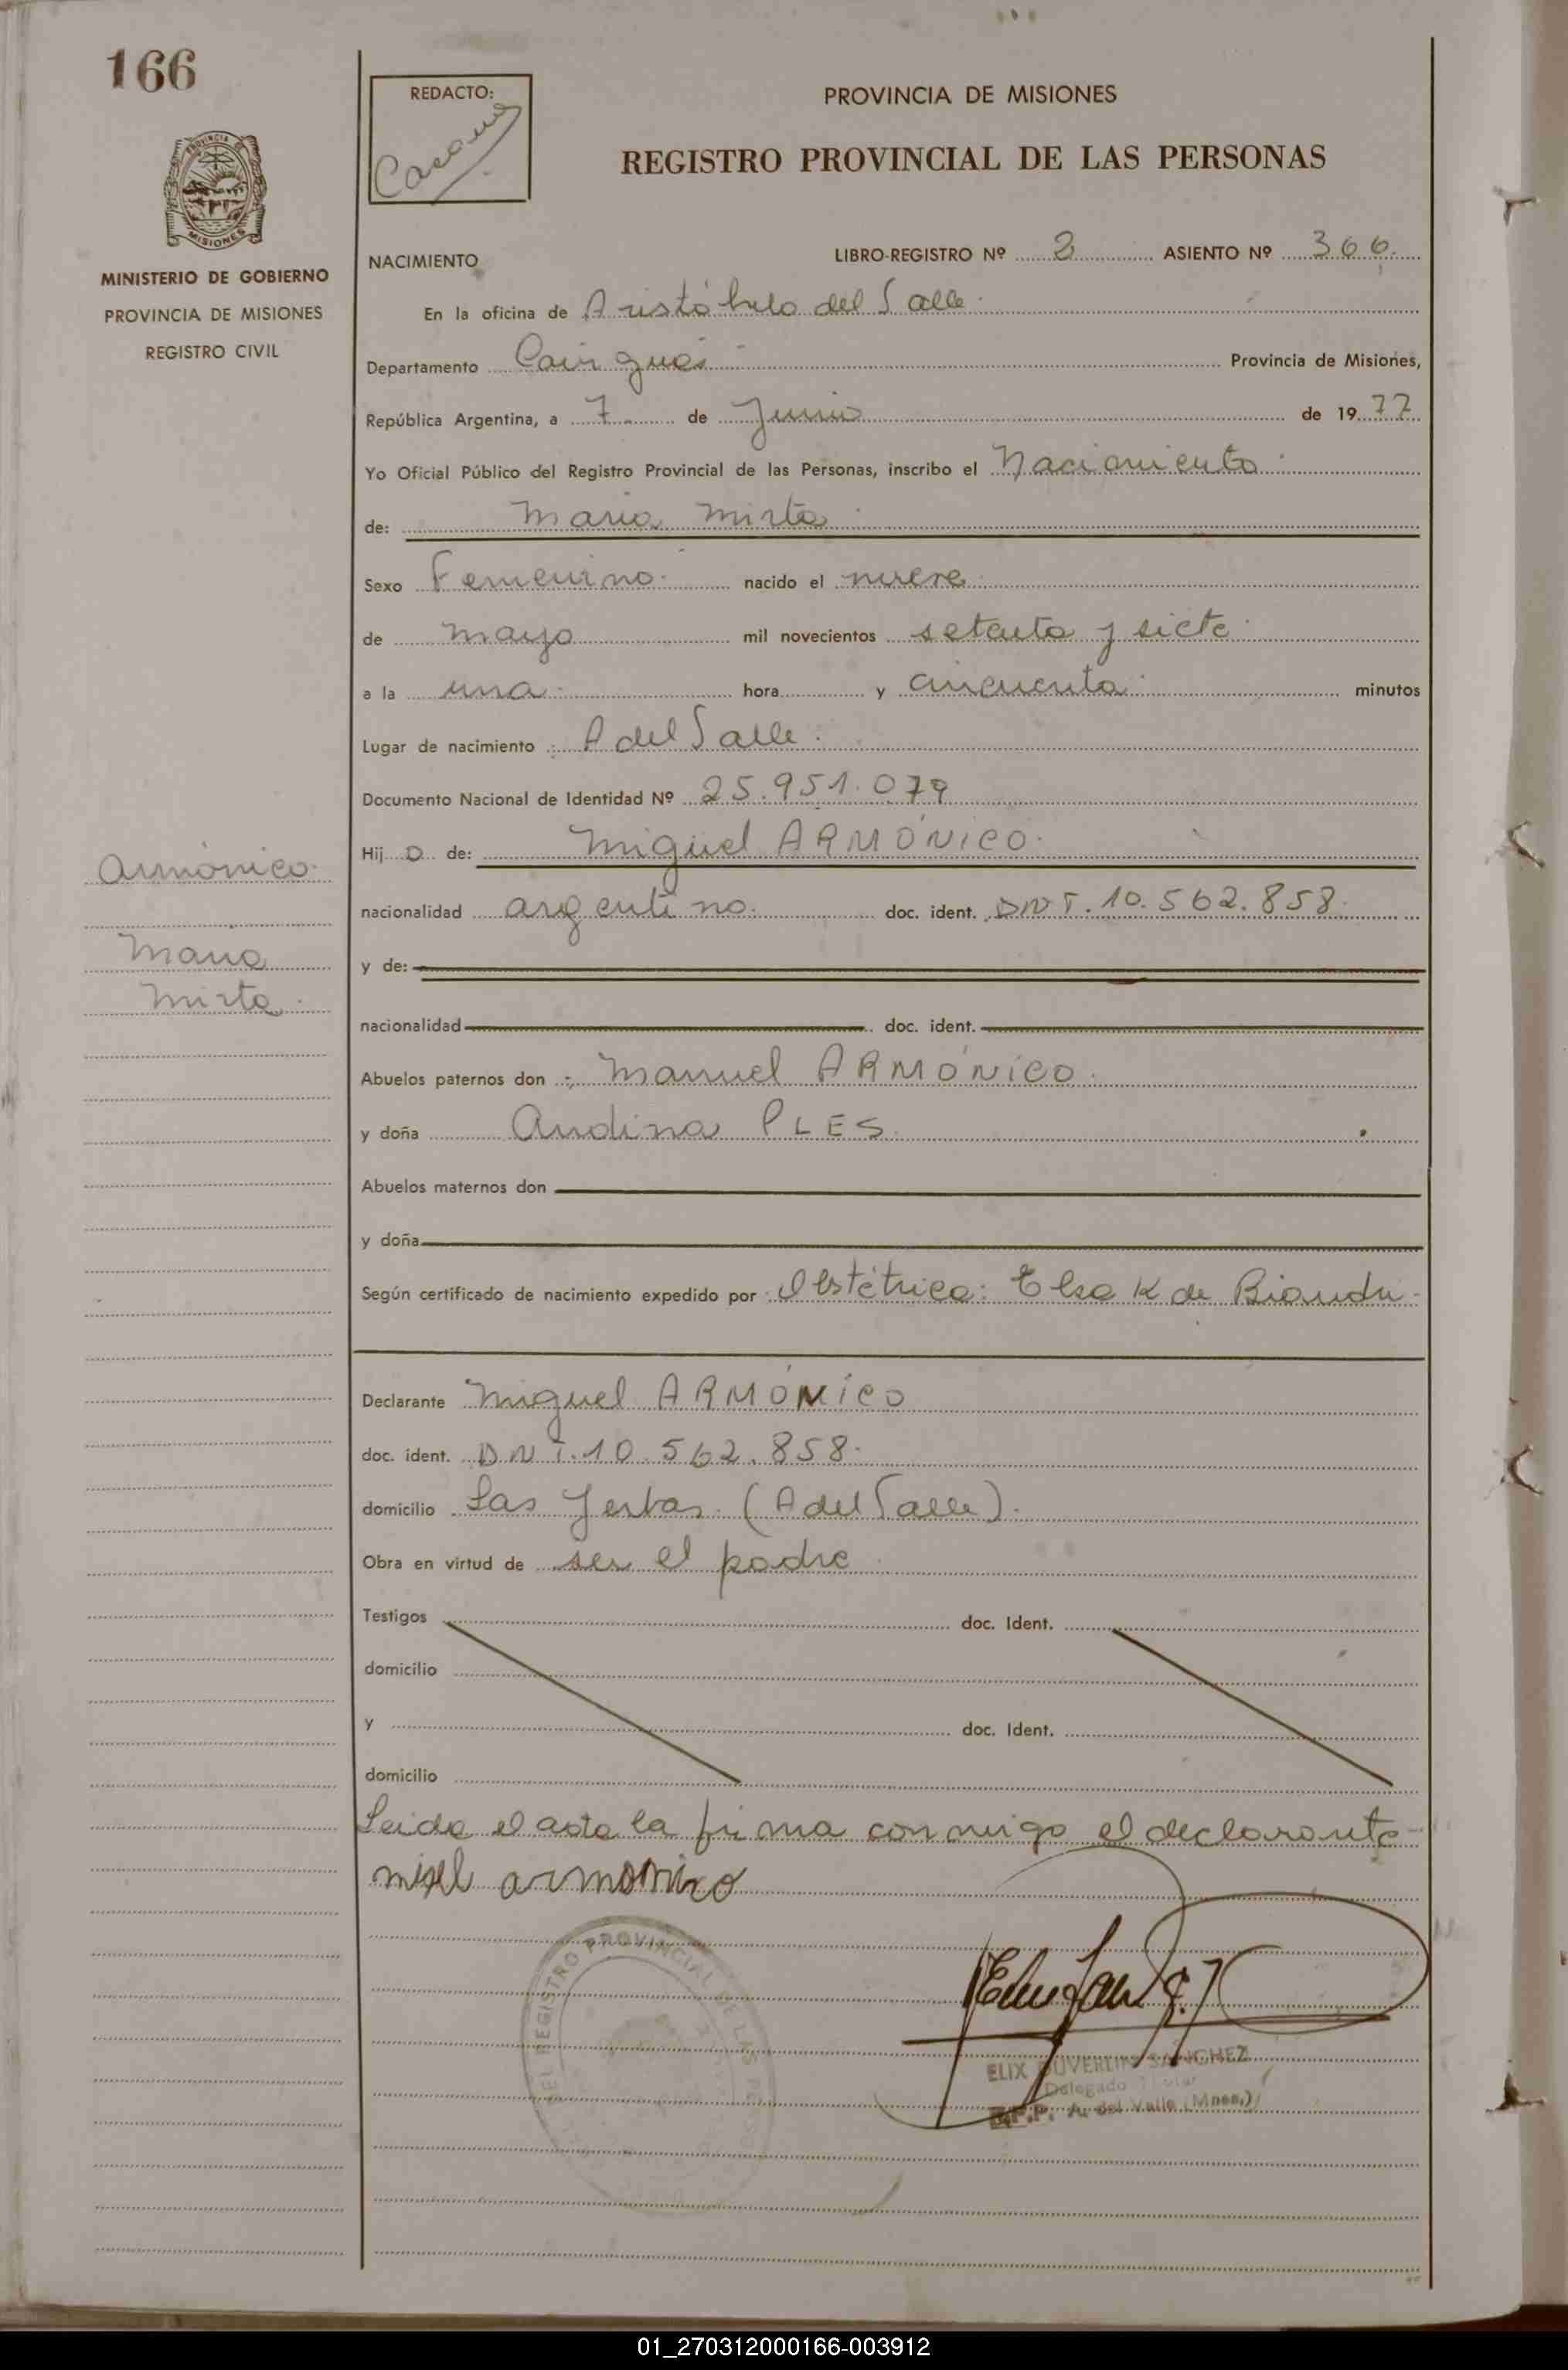 166
PROVINCIA DE MISIONES
MINISTERIO DE GOBIERNO
PROVINCIA DE MISIONES
REGISTRO CIVIL
Armónico.
Maria
Mirta.
REDACTO:
PROVINCIA DE MISIONES
REGISTRO PROVINCIAL DE LAS PERSONAS
NACIMIENTO LIBRO-REGISTRO Nº 2 ASIENTO Nº 366.
En la oficina de Aristóbulo del Valle.
Departamento Cainguás Provincia de Misiones,
República Argentina, a 7 de Junio de 19 77
Yo Oficial Público del Registro Provincial de las Personas, inscribo el Nacimiento
de: Maria Mirta
Sexo Femenino. nacido el nueve
de mayo mil novecientos setenta y siete
a la una hora y cincuenta minutos
Lugar de nacimiento A del Valle.
Documento Nacional de Identidad Nº 25.951.079
Hij a de: Miguel ARMÓNICO.
nacionalidad argentino. doc. ident. DNI. 10.562.858.
y de:
nacionalidad doc. ident.
Abuelos paternos don Manuel ARMÓNICO.
y doña Andina PLES.
Abuelos maternos don
y doña
Según certificado de nacimiento expedido por Obstétrica: Elsa K de
Declarante Miguel ARMÓNICO
doc. ident. DNI. 10.562.858.
domicilio Las Yerbas. (A del Valle).
Obra en virtud de ser el padre
Testigos doc. Ident.
domicilio
y doc. Ident.
domicilio
Leida el acta la firma conmigo el declarante
armonico
REGISTRO PROVINCIAL DE LAS
ELIX DUVERLIN SANCHEZ
Delegado Titular
R.P.P. A. del Valle (Mnes.)
01_270312000166-003912